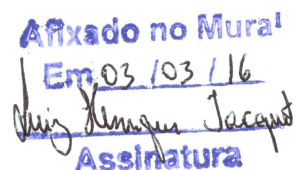 Afixado no Mural
Em 03 / 03 / 16
Luiz Henrique Jacquet
Assinatura